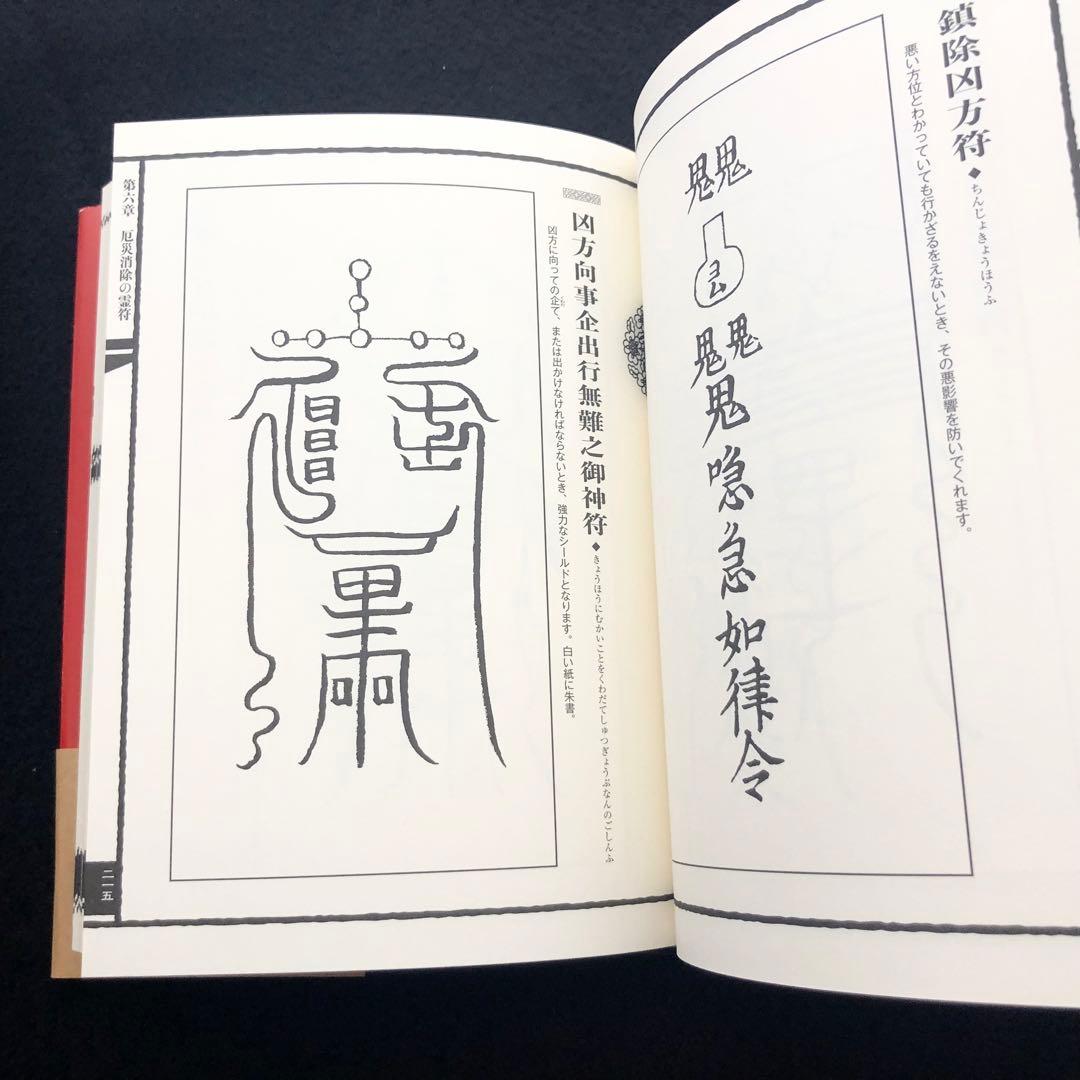 鎮除凶方符◆ちんじょきょうほうふ
悪い方位とわかっていても行かざるをえないとき、その悪影響を防いでくれます。
鬼鬼
鬼鬼
鬼
喼急如律令
凶方向事企出行無難之御神符◆きょうほうにむかいことをくわだてしゅつぎょうぶなんのごしんふ
凶方に向っての企て、または出かけなければならないとき、強力なシールドとなります。白い紙に朱書。
第六章 厄災消除の霊符
二一五